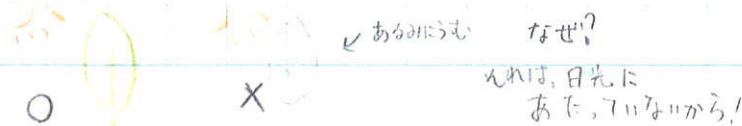 あるみにうむ なぜ?
それは、日光に
○ × あたっていないから!